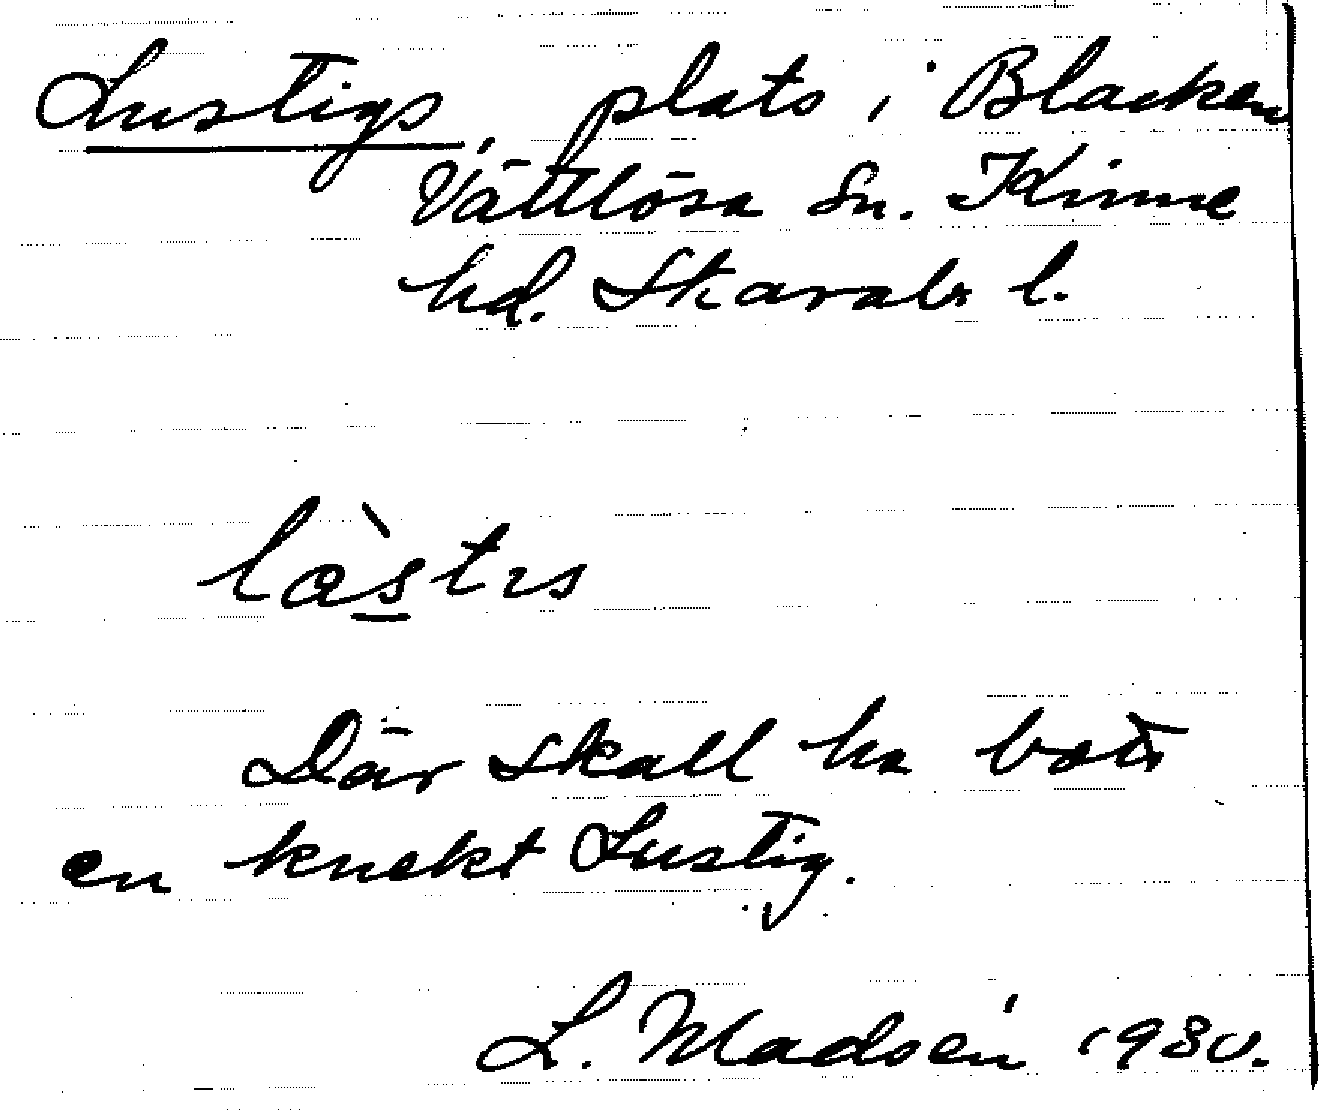 Lustigs, plats i Blacken
Vättlösa sn. Kinne
hd. Skarab. l.
Där skall ha bott
en knekt Lustig.
L. Madsén 1930.